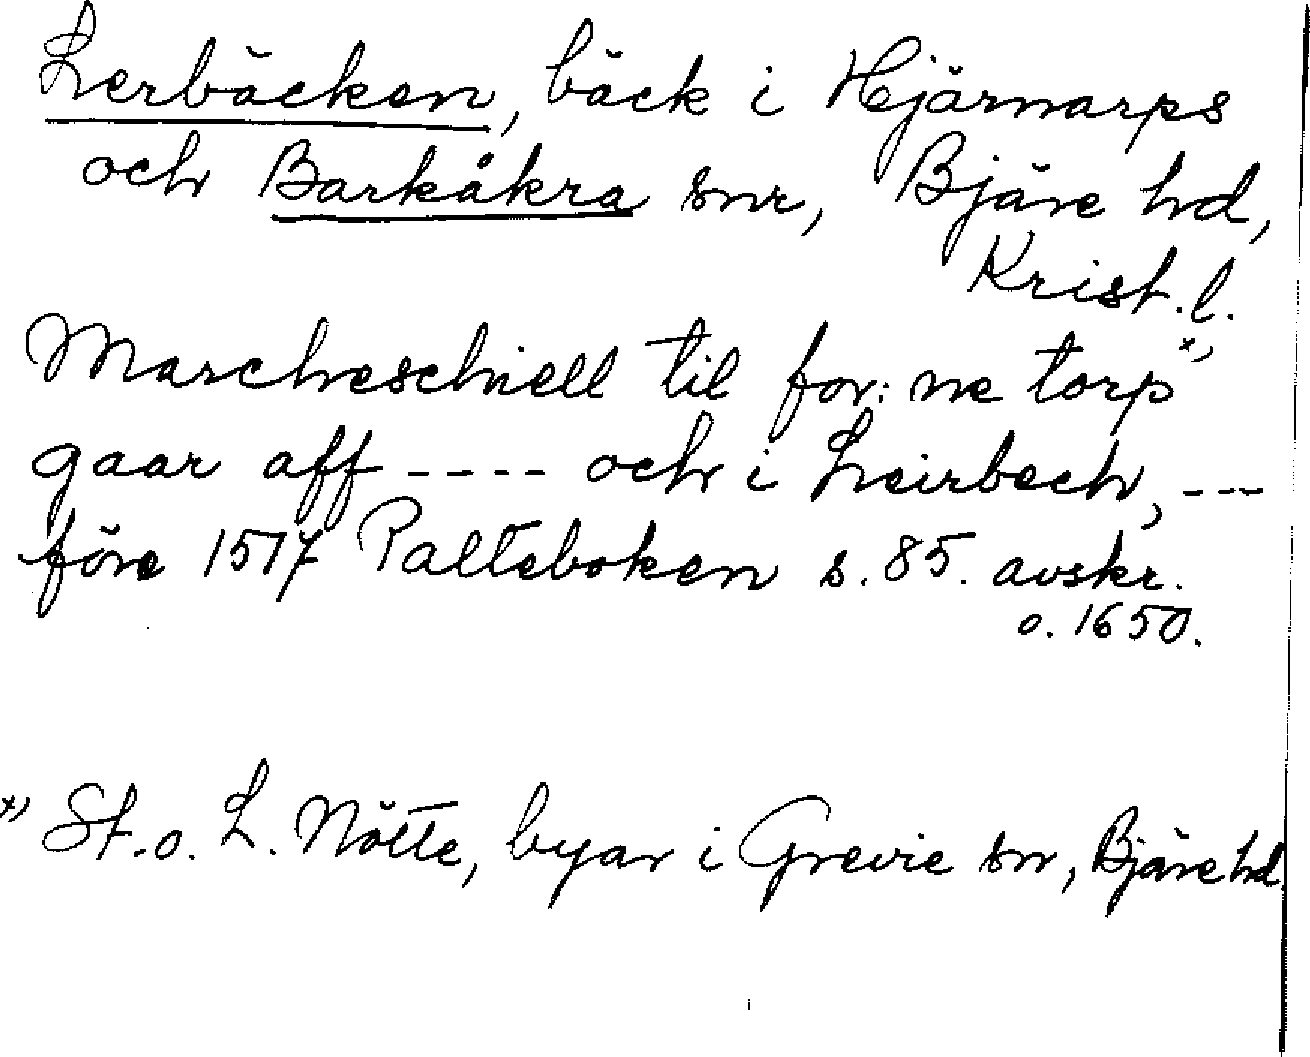 Lerbäcken, bäck i Hjärnarps
och Barkåkra snr, Bjäre hd,
Krist. l.
Marcheschiell til for: ne torp x)
gaar aff ---- och i Leirbech, ---
före 1517 Palteboken s. 85. avskr.
o. 1650.
x) St. o. L. Nötte, byar i Grevie sn, Bjäre hd